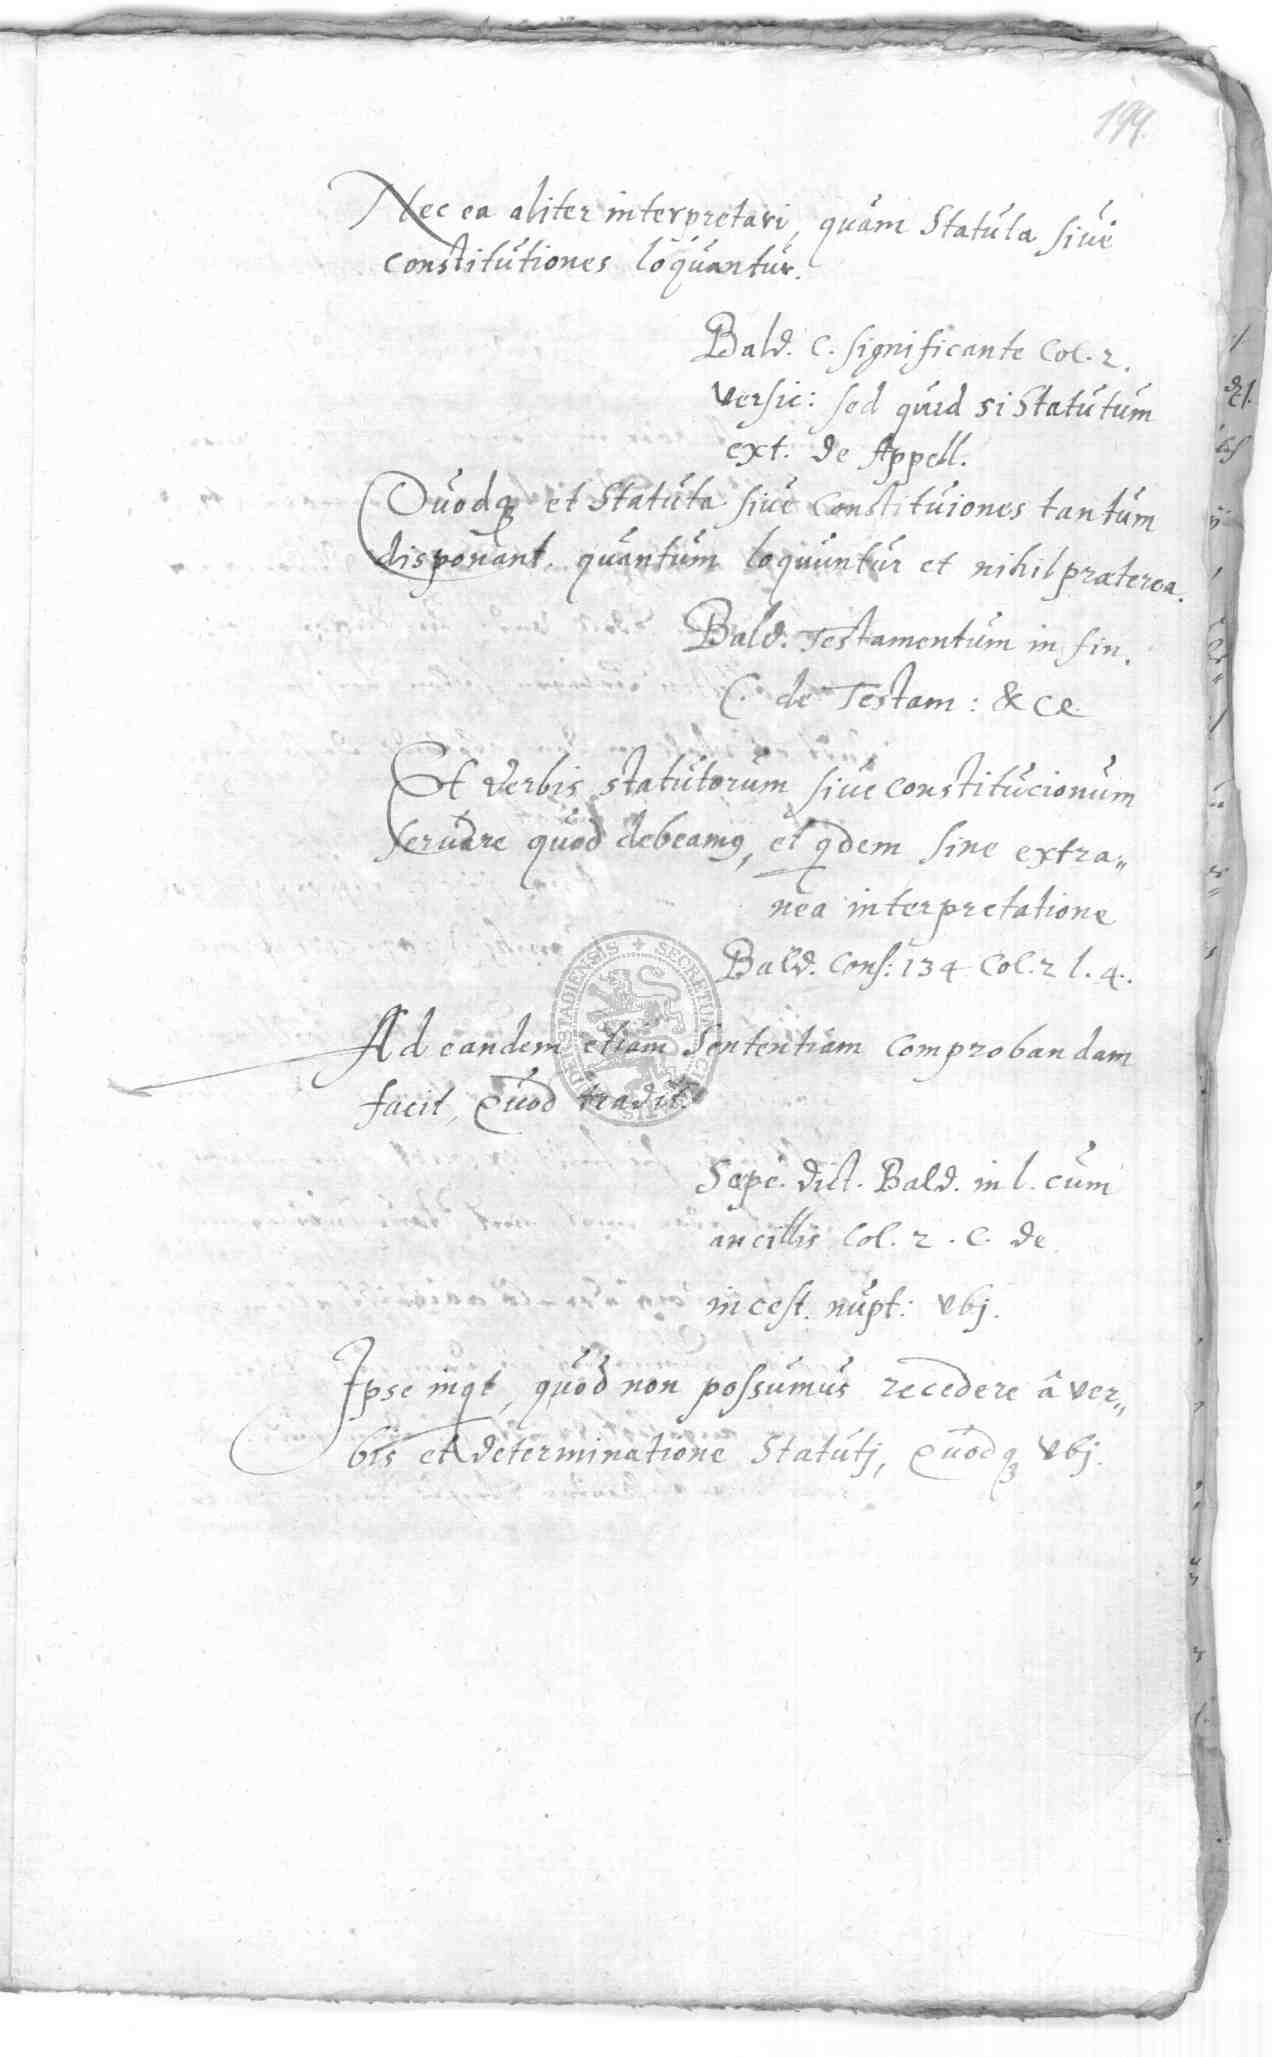 199.
Nec ea aliter interpretari, quàm Statuta siue
constitutiones loquantur.
Bald. C. significante Col. 2.
versic: sed quid si Statutum
ext. de Appell.
Quodq3 et Statuta siue Constituiones tantum
disponant. quantum loquuntur et nihil praeterea.
Bald. Testamentum in fin.
C. de Testam: &ce.
Et verbis statutorum siue constitucionum
seruare quod debeam9, et qdem sine extra„
nea interpretatione
Bald. Cons: 134 Col. 2 l. 4.
Ad eandem etiam Sententiam comprobandam
facit, Quod tradit.
Sæpe. dict. Bald. in l. cum
ancillis Col. 2. C. de
incest. nupt: vbj.
Ipse inqt, quod non possumus recedere â ver„
bis et determinatione Statutj, Quodq3 vbj.